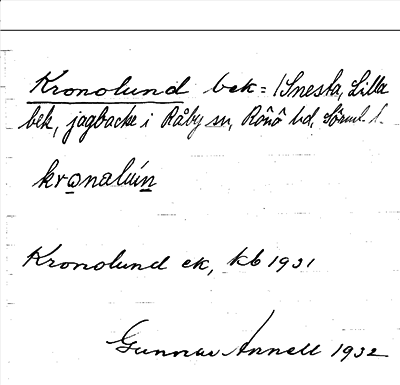 Kronolund bek = /Snesta, Lilla
bek, jagbacke i Råby sn, Rönö hd, Sörml. l.
kronaluin
Kronolund ek, kb 1931
Gunnar Annell 1932